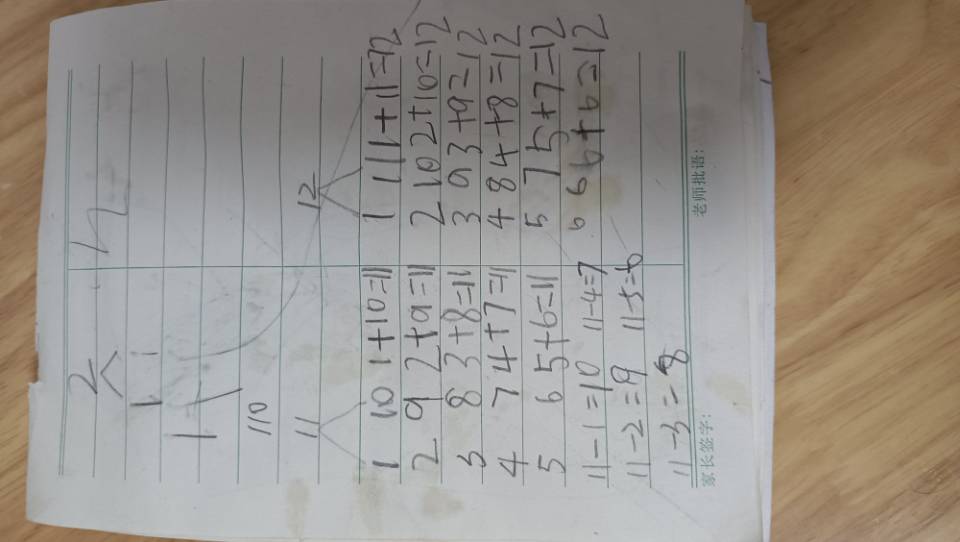 2
1 1
1
110
11 12
1 10 1+10=11 1 11 1+11=12
2 9 2+9=11 2 10 2+10=12
3 8 3+8=11 3 9 3+9=12
4 7 4+7=11 4 8 4+8=12
5 6 5+6=11 5 7 5+7=12
11-1=10 11-4=7 6 6 6+6=12
11-2=9 11-5=6
11-3=8
家长签字: 老师批语: